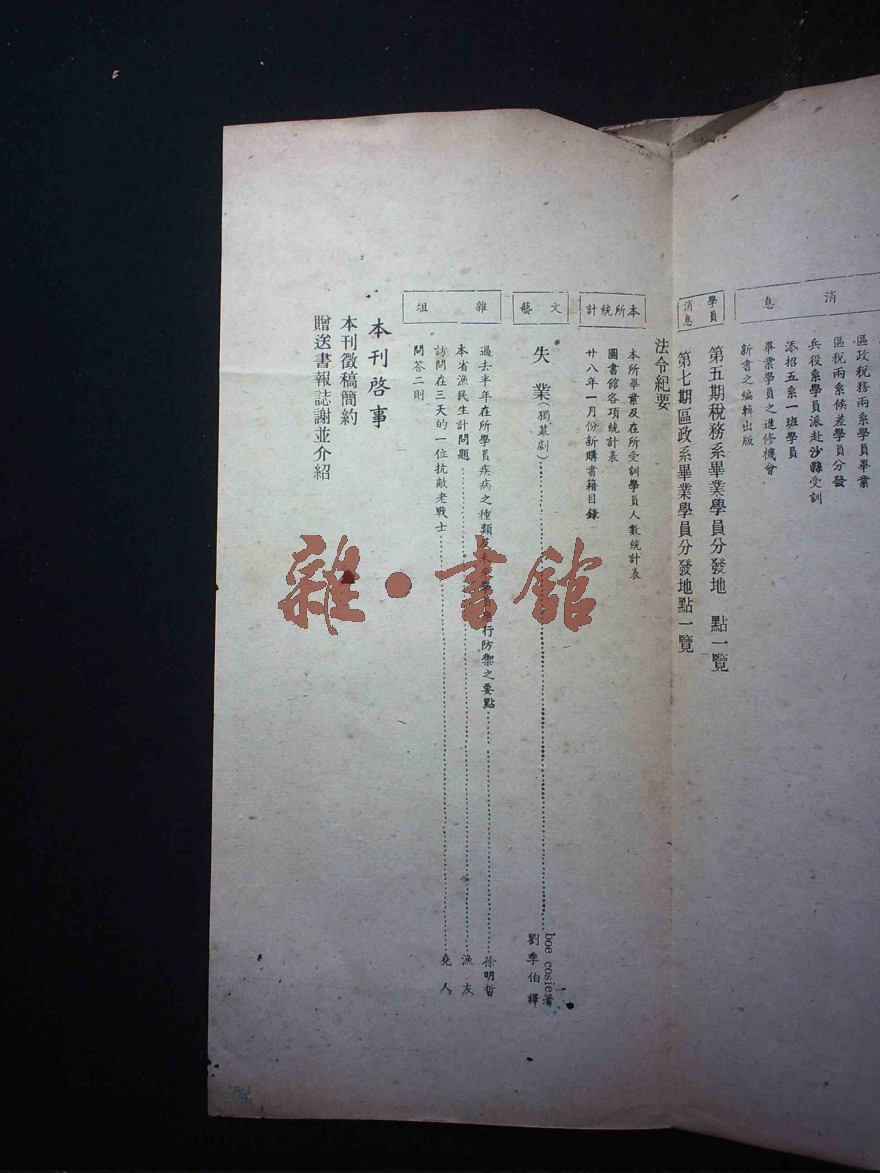 消息
區政稅務兩系學員畢業
區稅兩系候差學員分發
兵役系學員派赴沙縣受訓
添招五系一班學員
畢業學員之進修機會
新書之編輯出版
學員消息
第五期稅務系畢業學員分發地 點一覽
第七期區政系畢業學員分發地點一覽
法令紀要
本所統計
本所畢業及在所受訓學員人數統計表
圖書館各項統計表
廿八年一月份新購書籍目錄
文藝
失業(獨幕劇)……boe cosie著
劉季伯譯
雜俎
過去半年在所學員疾病之種類及 行防禦之要點……徐明哲
本省漁民生計問題……漁友
訪問在三天的一位抗敵老戰士……堯人
問答二則
本刊啓事
本刊徵稿簡約
贈送書報誌謝並介紹
雜·書館